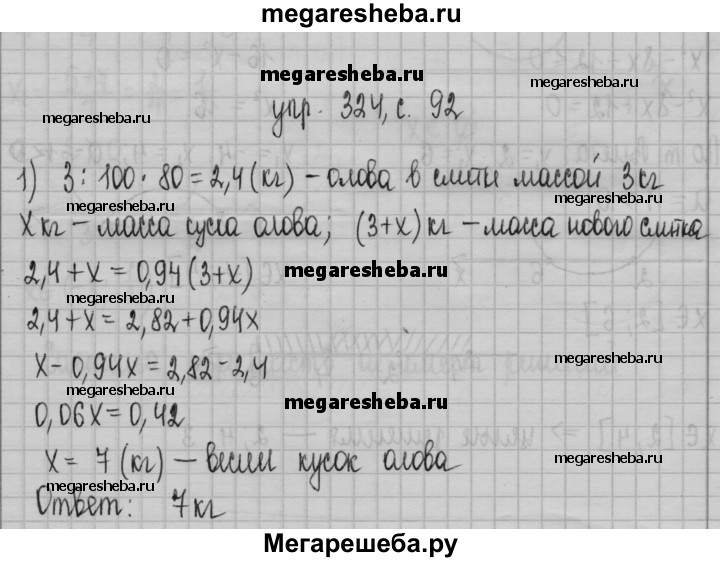 megaresheba.ru
megaresheba.ru
megaresheba.ru
megaresheba.ru
упр. 324, с. 92
1) 3 : 100 · 80 = 2,4 (кг) – олова в слитке массой 3 кг
megaresheba.ru
megaresheba.ru
x кг – масса куска олова; (3+x) кг – масса нового слитка
2,4 + x = 0,94 (3+x)
megaresheba.ru
megaresheba.ru
2,4 + x = 2,82 + 0,94x
x – 0,94x = 2,82 – 2,4
megaresheba.ru
megaresheba.ru
0,06x = 0,42
megaresheba.ru
x = 7 (кг) – весил кусок олова
megaresheba.ru
megaresheba.ru
Ответ: 7 кг
Мегарешеба.ру